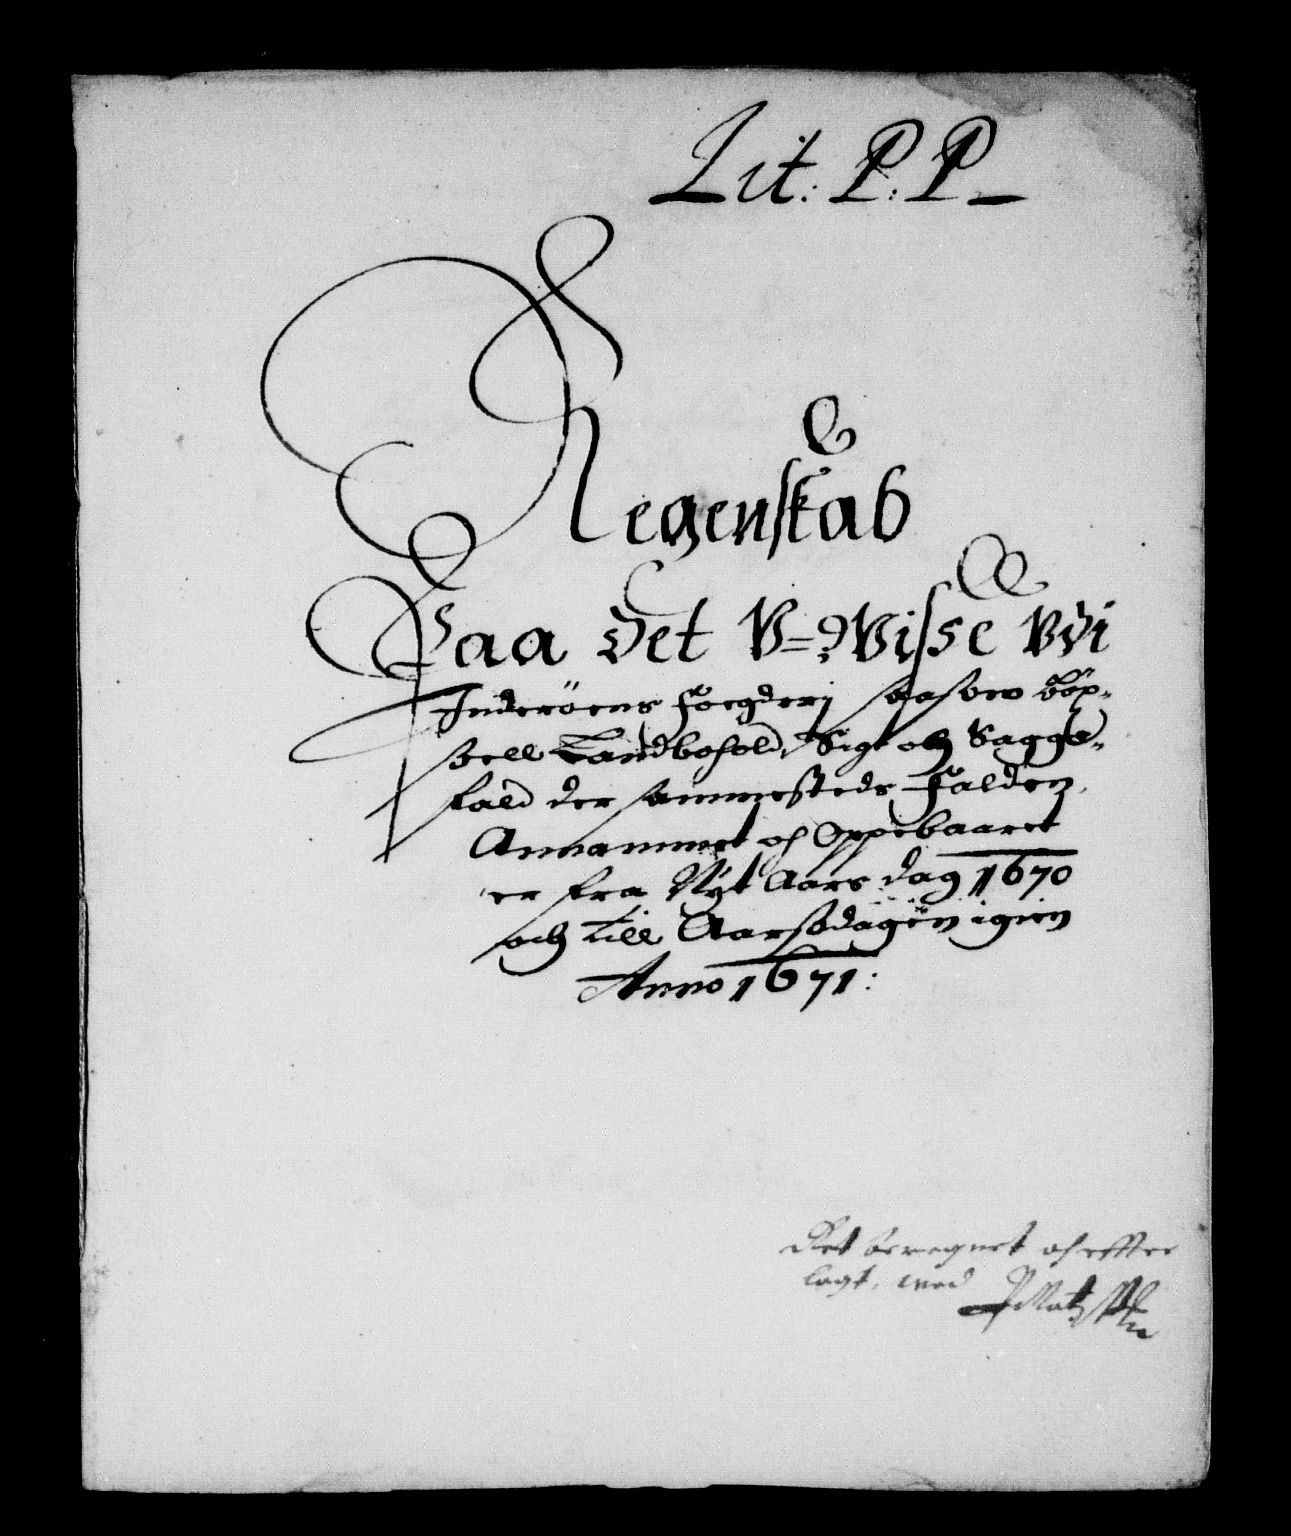 Lit: P: P
Regenskab
Paa Det V=Wisse vdi
Inderöens Foegderj saasom Böx-
sell Landbohold, Sigt och Sagge-
fald der sammesteds Falden,
Annammet oc Oppebaaret
er fra Nyt Aars dag 1670
och till Aarsdagen igien
Anno 1671:
Det beregnet oc effter
lagt, med